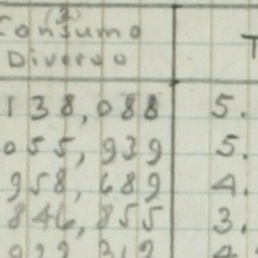 (3)
Consumo
Diverso
138,088 5.
055,939 5.
958,689 4.
846,855 3.